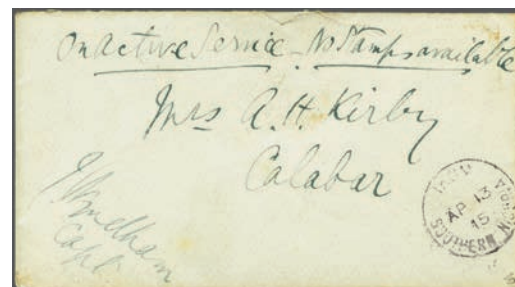 On Active Service - No Stamps available
Mrs A. H. Kirby
Calabar
Capt
AP 13
15
SOUTHERN NIGERIA